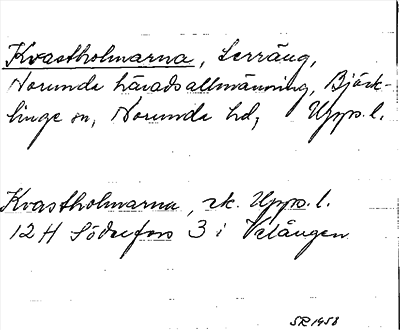 Kvastholmarna, terräng,
Norunda häradsallmänning, Björk-
linge sn, Norunda hd, Upps. l.
Kvastholmarna, rk. Upps. l.
12 H Söderfors 3 i Valängen
SR 1958